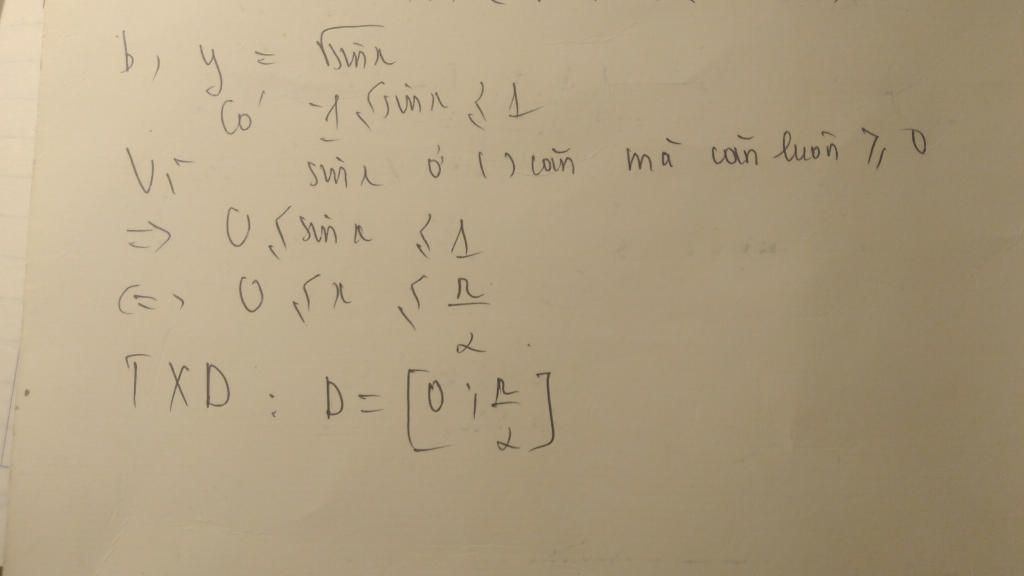 b, y = √sinx
Có -1 ≤ sinx ≤ 1
Vì sinx ở () căn mà căn luôn ≥ 0
=> 0 ≤ sinx ≤ 1
<=> 0 ≤ x ≤ π/2
TXD : D = [0 ; π/2]